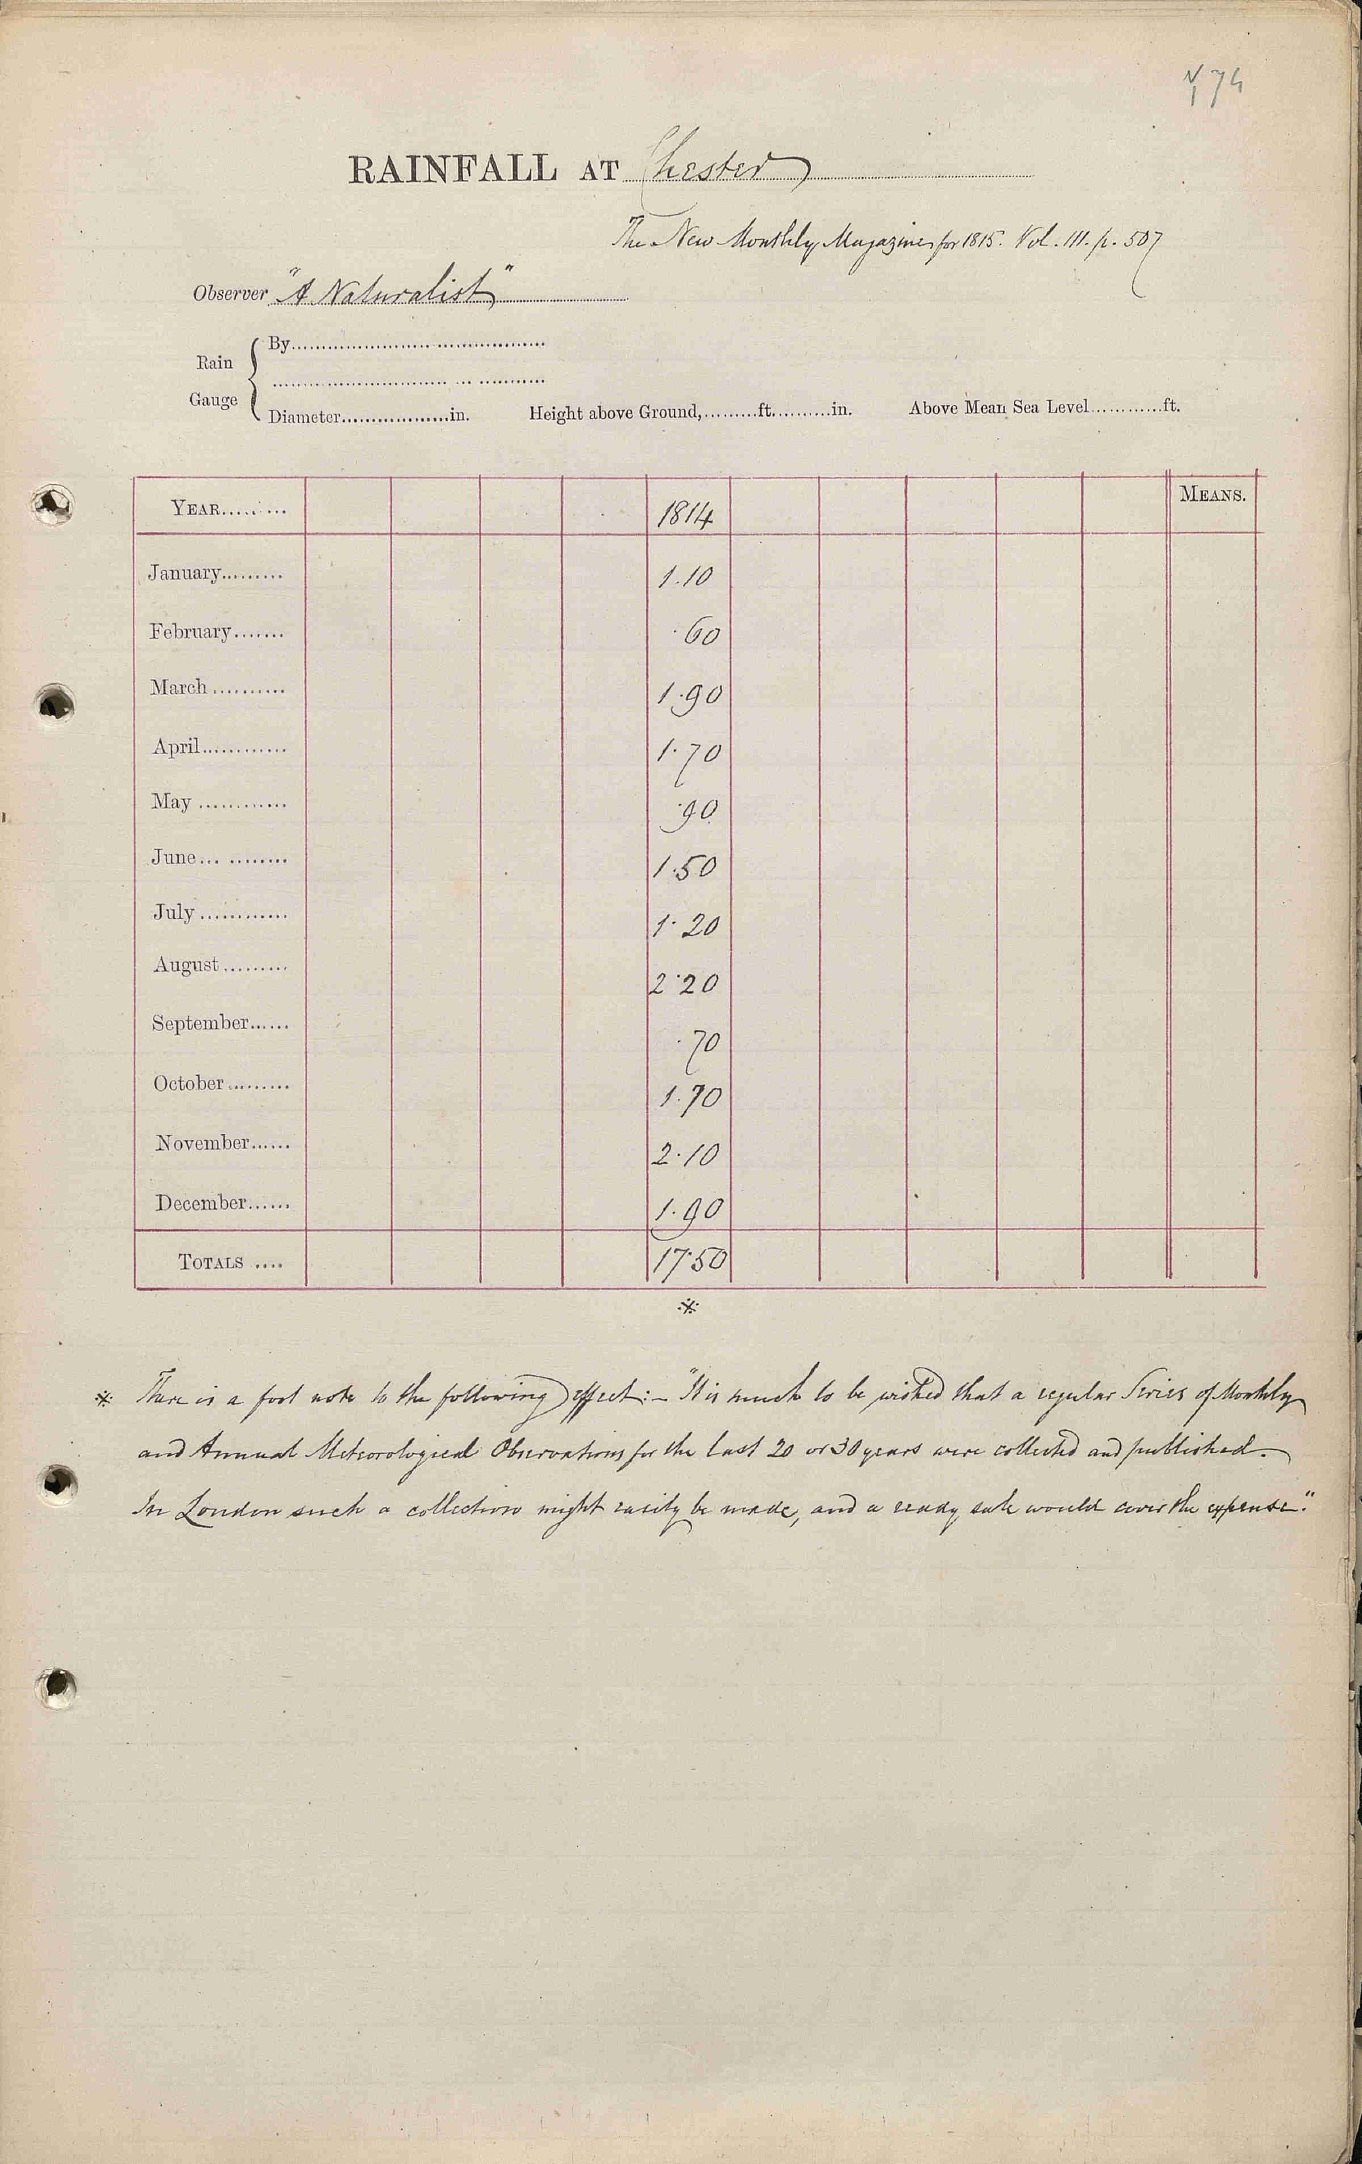 √ 74
RAINFALL AT Chester
The New Monthly Magazine for 1815. Vol. III. p. 507
Observer "A Naturalist"
Rain Gauge { By
Diameter in. Height above Ground, ft. in. Above Mean Sea Level ft.
YEAR 1814 MEANS.
January 1.10
February .60
March 1.90
April 1.70
May .90
June 1.50
July 1.20
August 2.20
September .70
October 1.70
November 2.10
December 1.90
TOTALS 17.50
※
※ There is a foot note to the following effect :– "It is much to be wished that a regular Series of Monthly
and Annual Meteorological Observations for the last 20 or 30 years were collected and published.
In London such a collection might easily be made, and a ready sale would cover the expense."